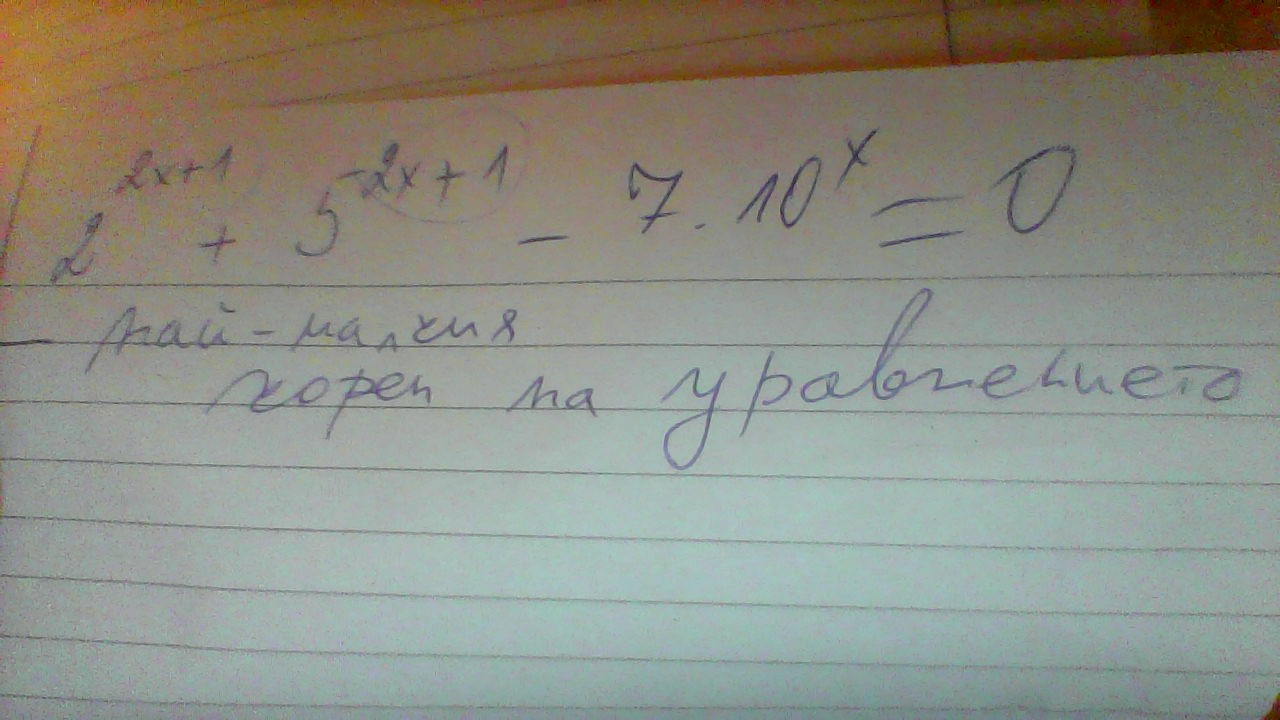 2^{2x+1} + 5^{-2x+1} - 7.10^x = 0
най-малкия
корен на уравнението